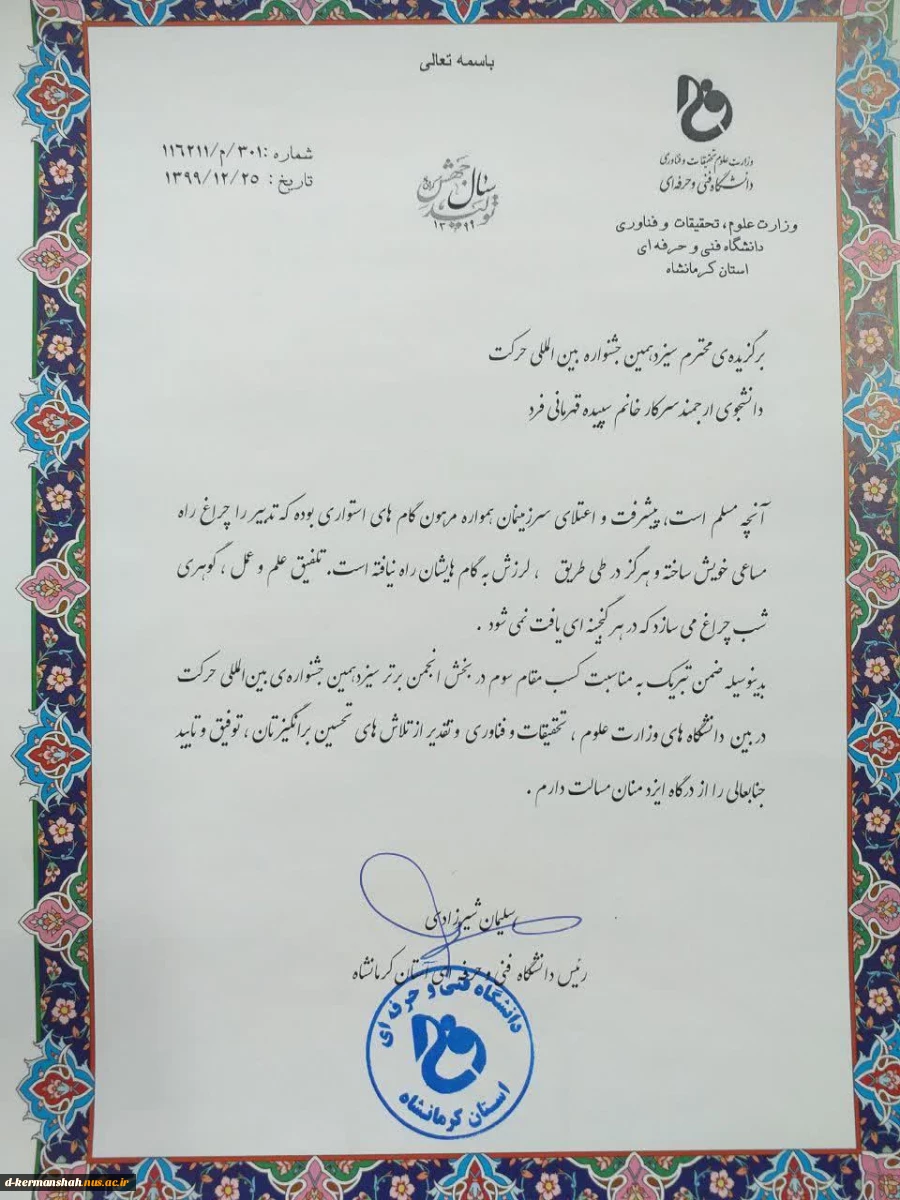 باسمه تعالی
وزارت علوم تحقیقات و فناوری
دانشگاه فنی و حرفه‌ای
وزارت علوم، تحقیقات و فناوری
دانشگاه فنی و حرفه ای
استان کرمانشاه
سال جهش تولید
۱۳۹۹
شماره :۳۰۱/م/۱۱۶۲۱۱
تاریخ : ۱۳۹۹/۱۲/۲۵
برگزیده‌ی محترم سیزدهمین جشنواره بین المللی حرکت
دانشجوی ارجمند سرکار خانم سپیده قهرمانی فرد
آنچه مسلم است، پیشرفت و اعتلای سرزمینمان همواره مرهون گام های استواری بوده که تدبیر را چراغ راه
مساعی خویش ساخته و هرگز در طی طریق ، لرزش به گام هایشان راه نیافته است. تلفیق علم و عمل ، گوهری
شب چراغ می سازد که در هر گنجینه ای یافت نمی شود .
بدینوسیله ضمن تبریک به مناسبت کسب مقام سوم در بخش انجمن برتر سیزدهمین جشنواره‌ی بین المللی حرکت
در بین دانشگاه های وزارت علوم ، تحقیقات و فناوری و تقدیر از تلاش های تحسین برانگیزتان ، توفیق و تایید
جنابعالی را از درگاه ایزد منان مسالت دارم .
سلیمان شیرزادی
رئیس دانشگاه فنی و حرفه ای استان کرمانشاه
دانشگاه فنی و حرفه ای
استان کرمانشاه
d-kermanshah.nus.ac.ir